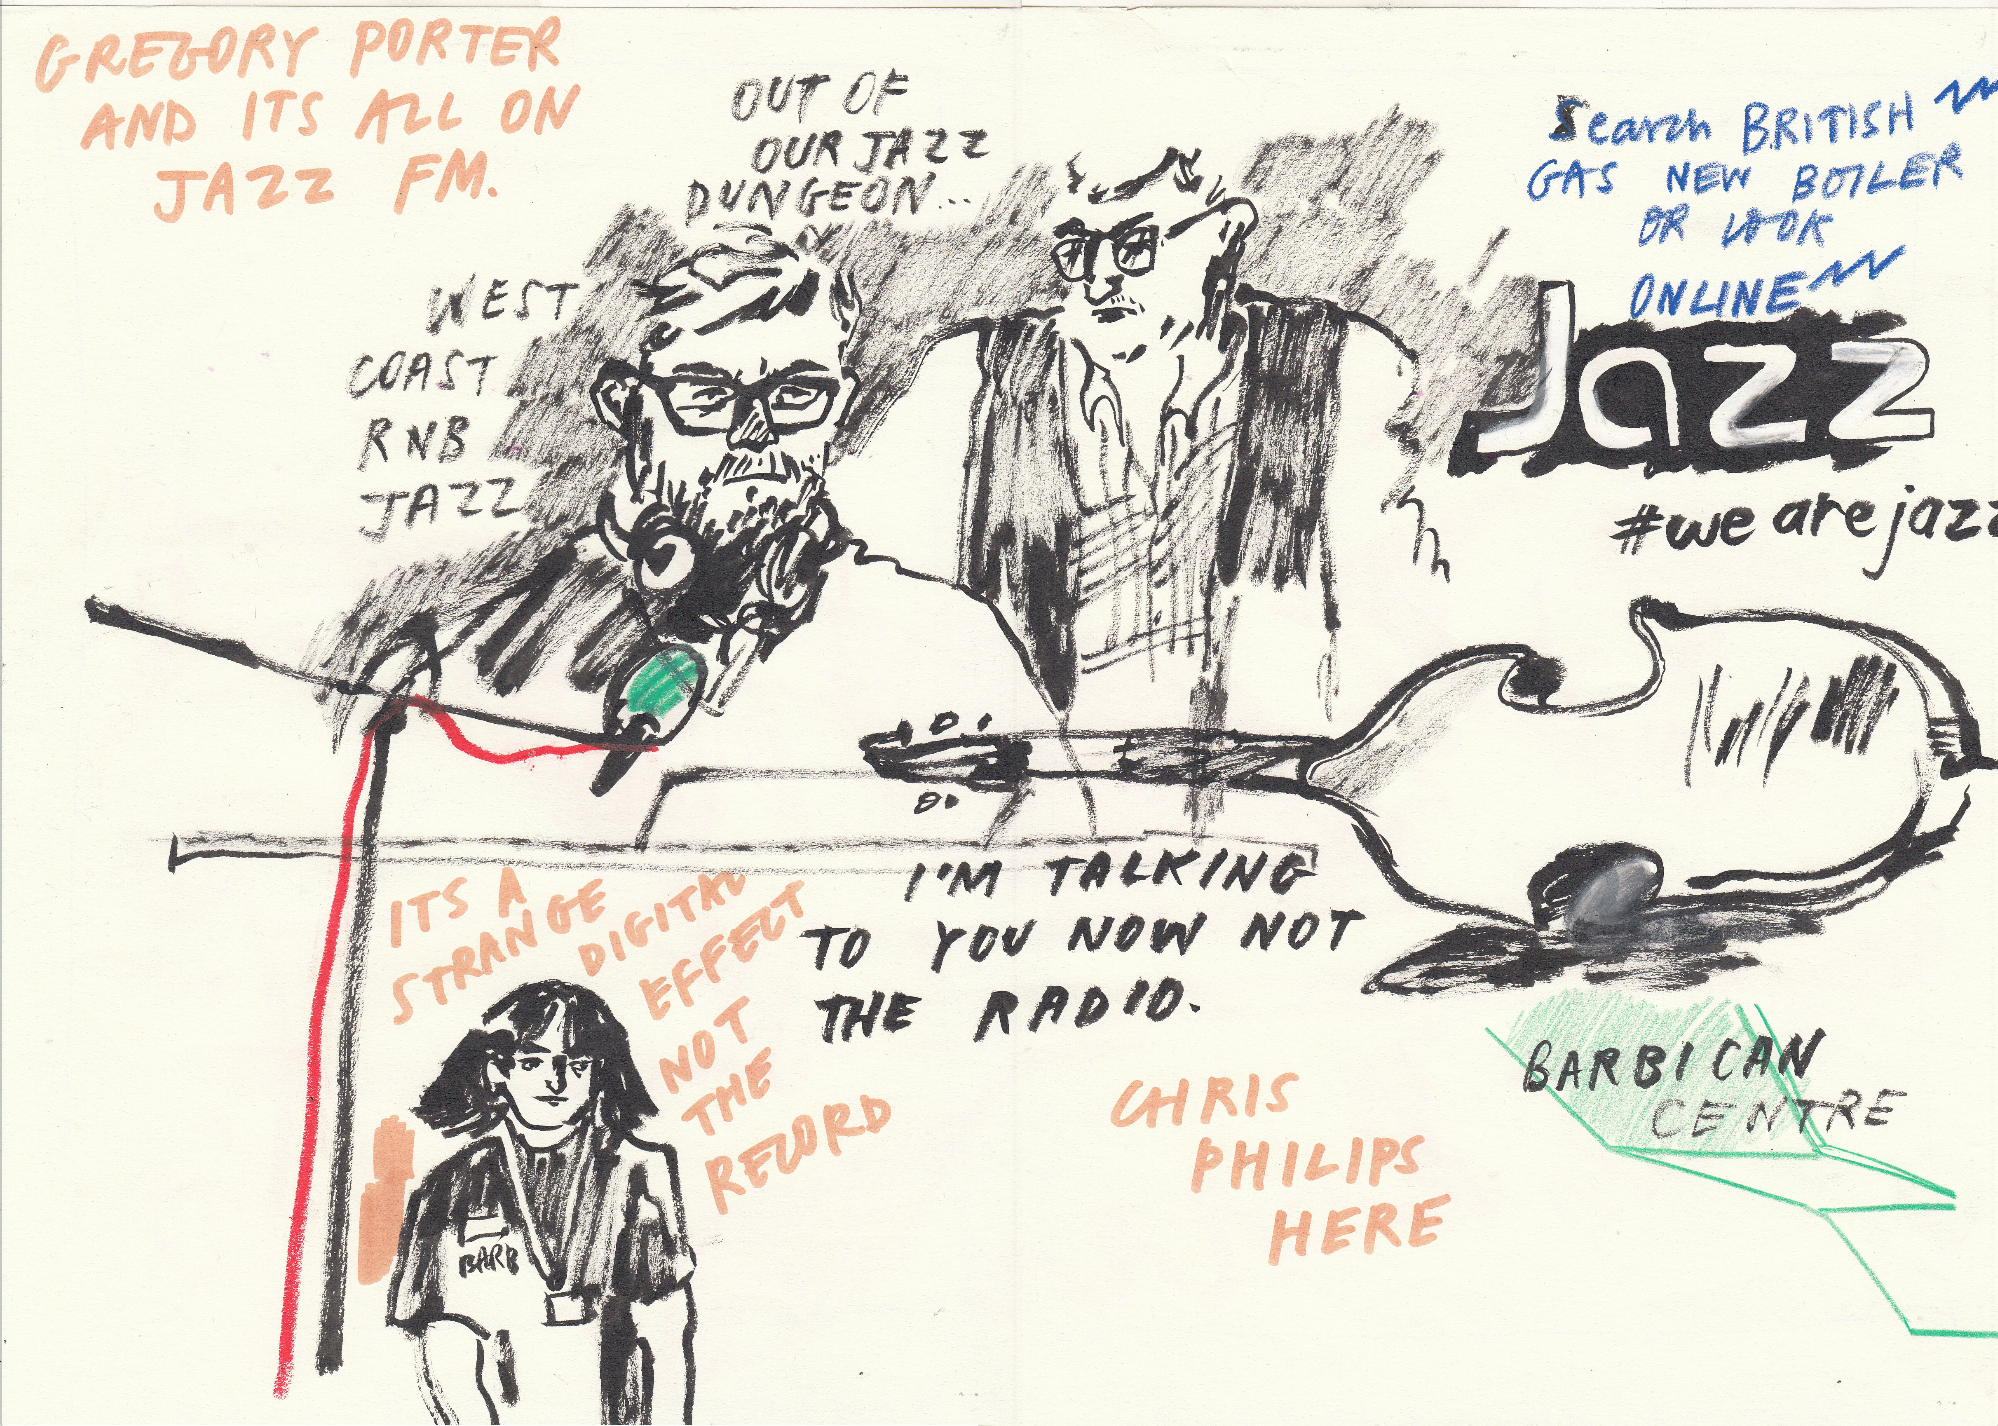 GREGORY PORTER
AND ITS ALL ON
JAZZ FM.
OUT OF
OUR JAZZ
DUNGEON...
Search BRITISH
GAS NEW BOILER
OR LOOK
ONLINE
WEST
COAST
RNB
JAZZ
Jazz
#we are jazz
I'M TALKING
TO YOU NOW NOT
THE RADIO.
ITS A
STRANGE
DIGITAL
EFFECT
NOT
THE
RECORD
BARB
CHRIS
PHILIPS
HERE
BARBICAN
CENTRE